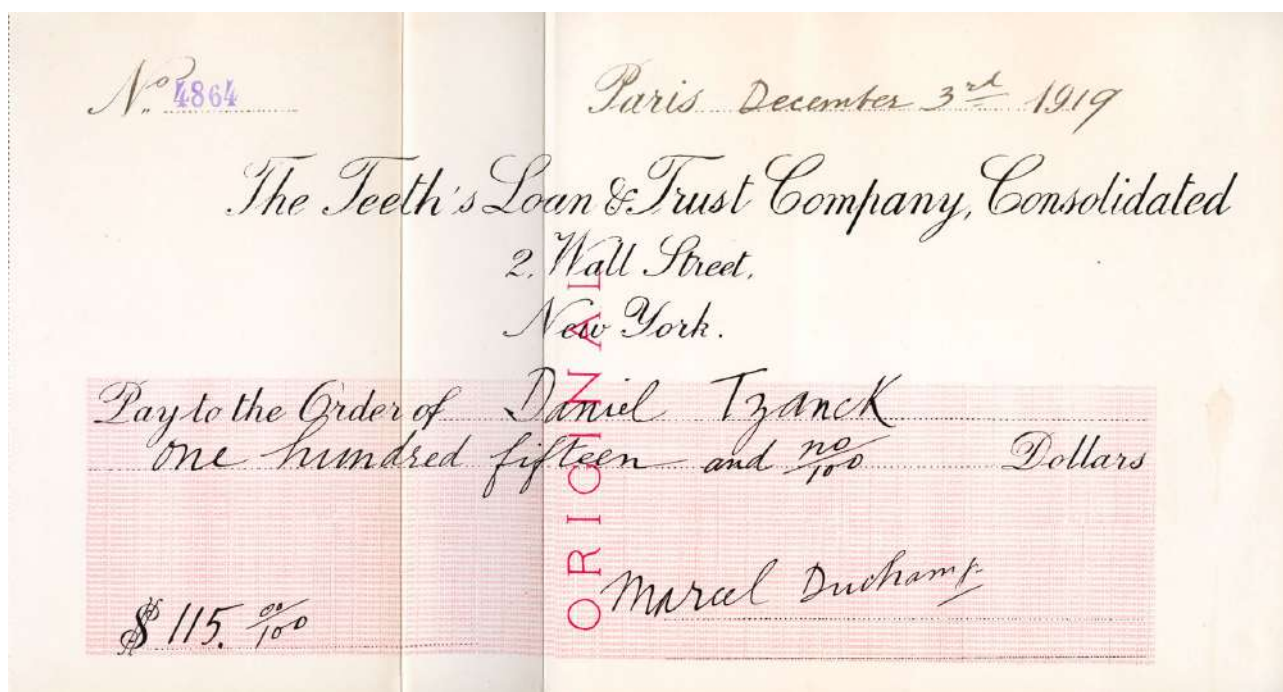 No. 4864
Paris December 3rd 1919
The Teeth's Loan & Trust Company, Consolidated
2, Wall Street,
New York.
ORIGINAL
Pay to the Order of Daniel Tzanck
one hundred fifteen and no/100 Dollars
$ 115. 00/100
Marcel Duchamp